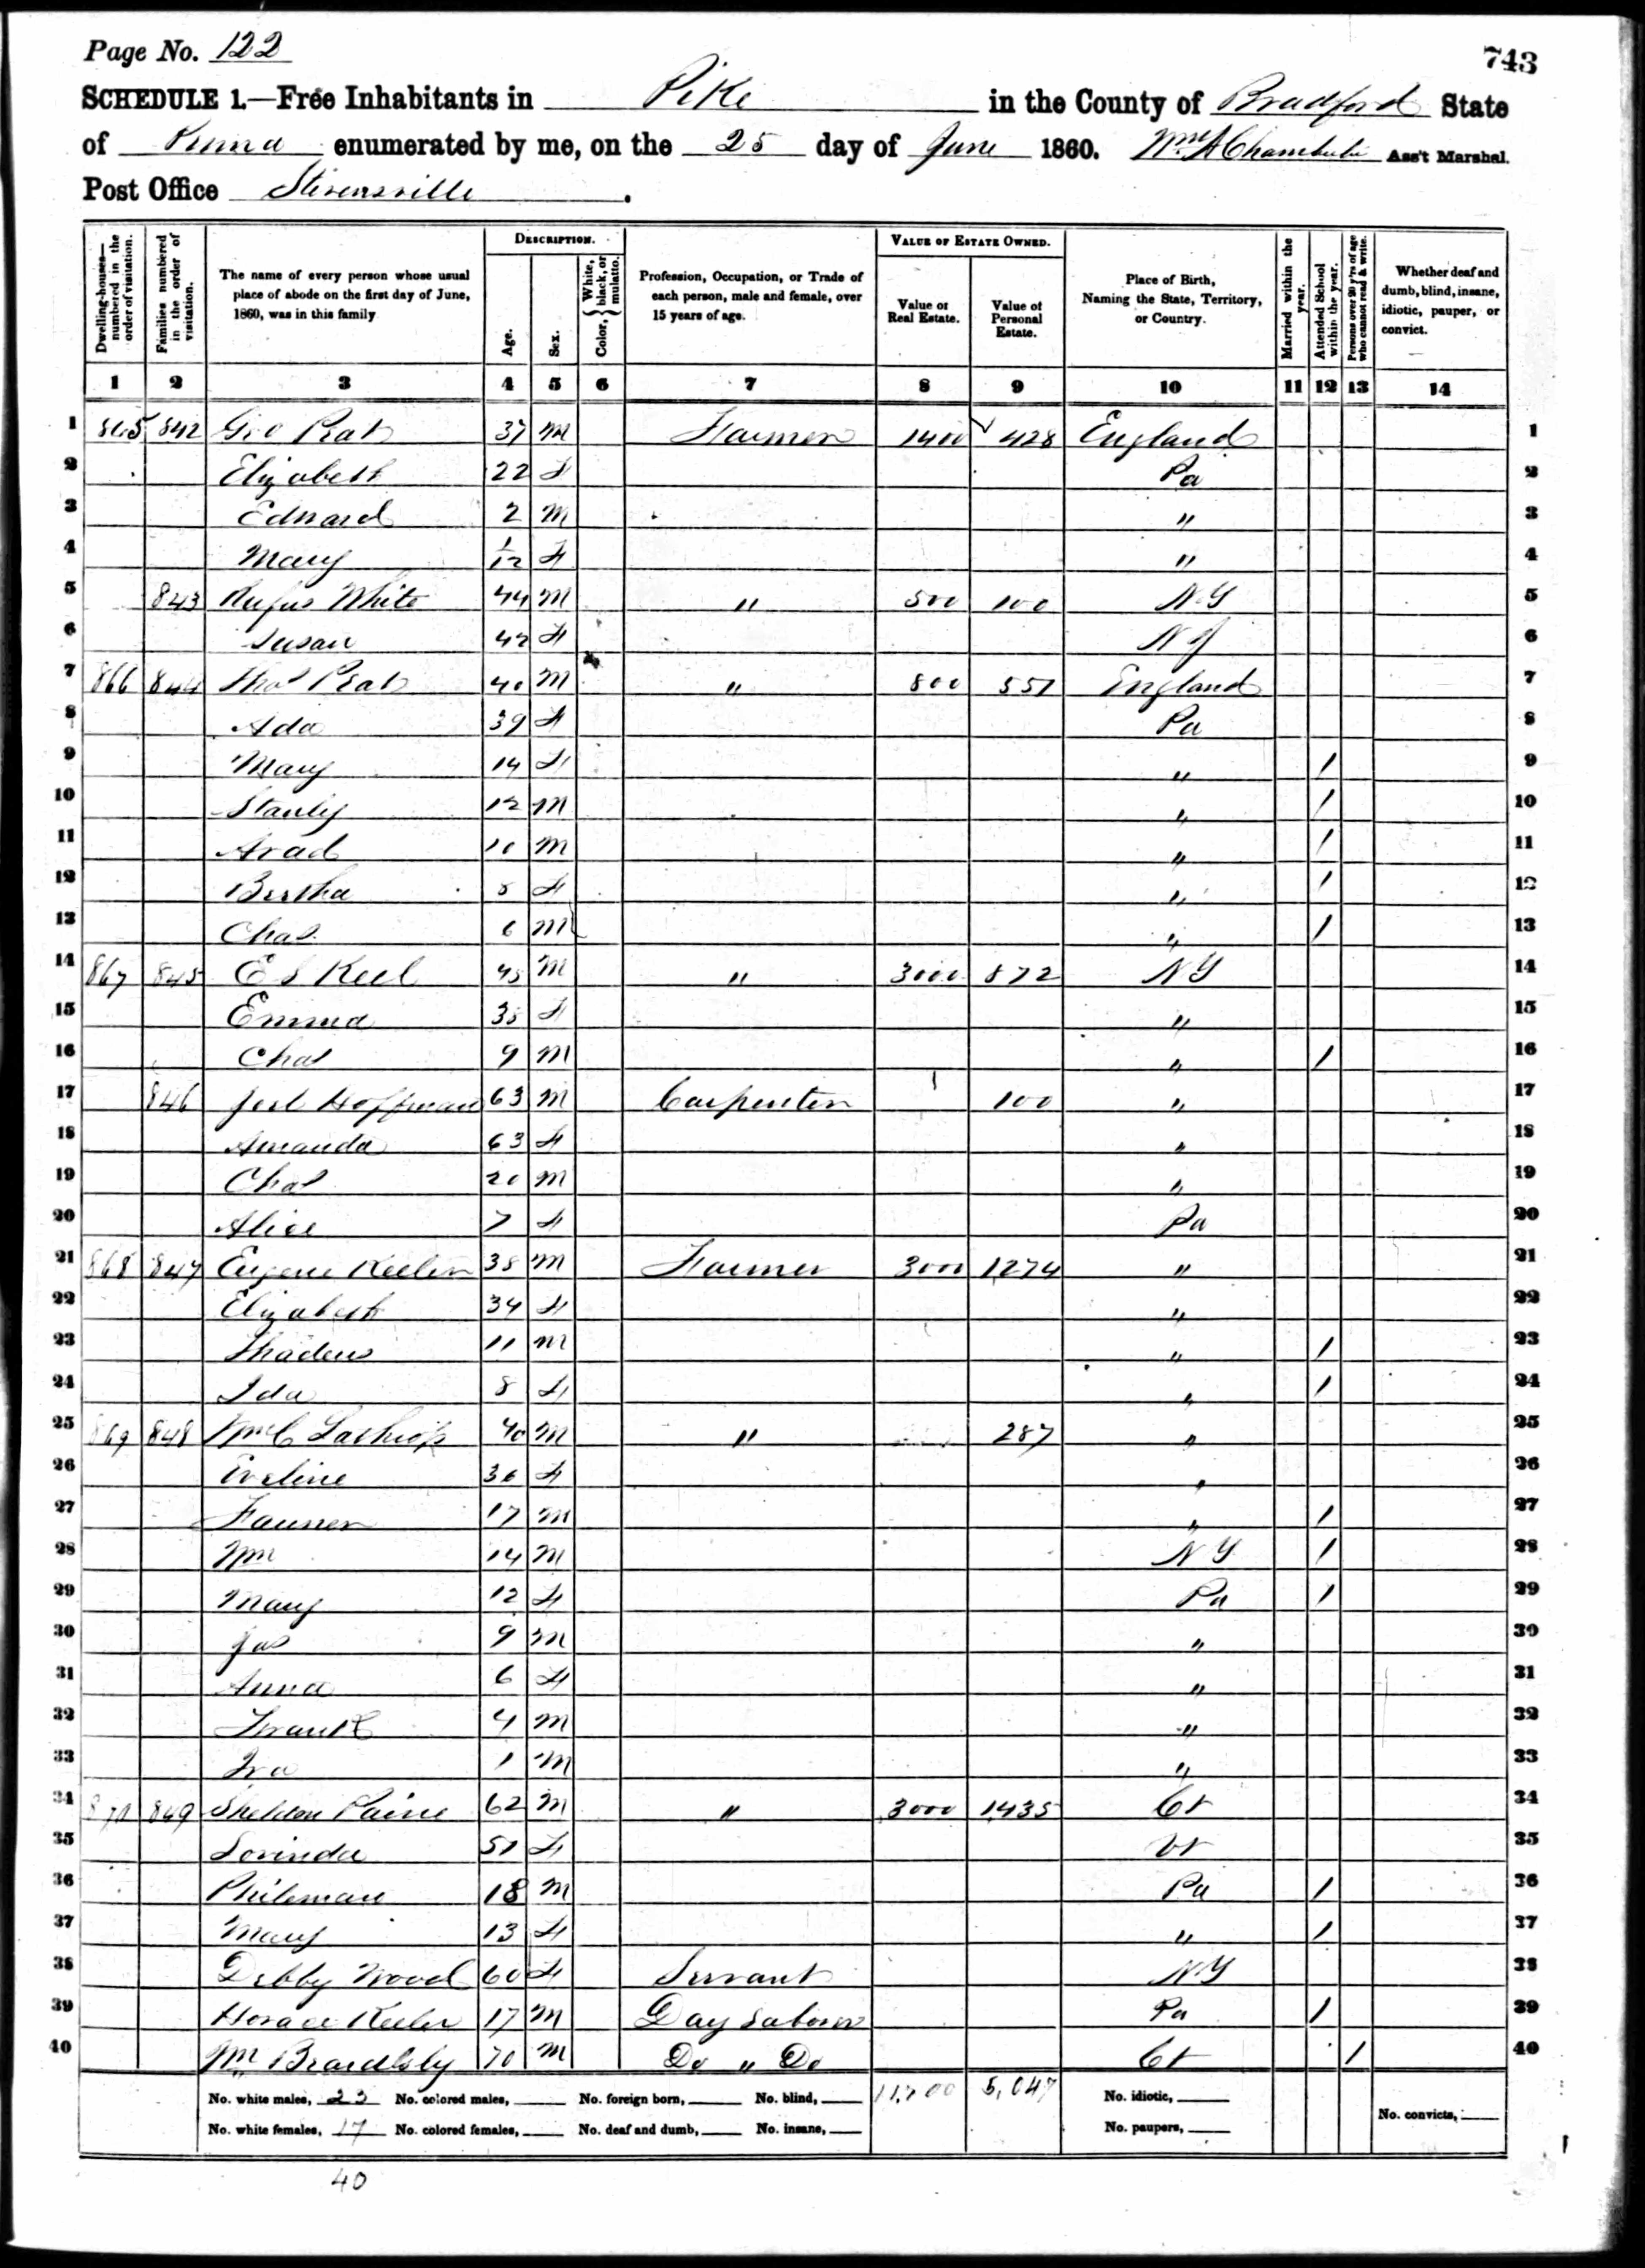 Page No. 122
743
SCHEDULE 1.—Free Inhabitants in Pike in the County of Bradford State
of Penna enumerated by me, on the 25 day of June 1860. Wm A Chamberlin Ass't Marshal.
Post Office Stevensville.
Dwelling-houses—numbered in the order of visitation.
Families numbered in the order of visitation.
The name of every person whose usual place of abode on the first day of June, 1860, was in this family
DESCRIPTION.
Age.
Sex.
Color, { White, black, or mulatto.
Profession, Occupation, or Trade of each person, male and female, over 15 years of age.
VALUE OF ESTATE OWNED.
Value of Real Estate.
Value of Personal Estate.
Place of Birth, Naming the State, Territory, or Country.
Married within the year.
Attended School within the year.
Persons over 20 y'rs of age who cannot read & write.
Whether deaf and dumb, blind, insane, idiotic, pauper, or convict.
1 2 3 4 5 6 7 8 9 10 11 12 13 14
1 865 842 Geo Prat 37 M Farmer 1400 428 England 1
2 Elizabeth 22 F Pa 2
3 Edward 2 M " 3
4 Mary 1/12 F " 4
5 843 Rufus White 44 M " 500 100 N.Y 5
6 Susan 42 F 6
7 866 844 Thos Prat 40 M " 800 551 England 7
8 Ada 39 F Pa 8
9 Mary 14 F " / 9
10 Stanly 12 M " / 10
11 Arad 10 M " / 11
12 Bertha 8 F " / 12
13 Chas. 6 M " / 13
14 867 845 E S Keel 45 M " 3000 872 N Y 14
15 Emma 35 F " 15
16 Chas 9 M " / 16
17 846 Hoffman 63 M Carpenter 100 " 17
18 Amanda 63 F " 18
19 Chas 20 M " 19
20 Alice 7 F Pa 20
21 868 847 Eugene Keeler 38 M Farmer 3000 1274 " 21
22 Elizabeth 34 F " 22
23 Thadeus 11 M " / 23
24 Ida 8 F " / 24
25 869 848 Wm C Lathrop 40 M " 287 " 25
26 Eveline 36 F " 26
27 17 M " / 27
28 Wm 14 M N Y / 28
29 Mary 12 F Pa / 29
30 Jas 9 M " 30
31 Anna 6 F " 31
32 Frank 4 M " 32
33 Ira 1 M " 33
34 870 849 Sheldon Paine 62 M " 3000 1435 Ct 34
35 Lorinda 51 F Vt 35
36 Phileman 18 M Pa / 36
37 Mary 13 F " / 37
38 Debby Wood 60 F Servant N.Y 38
39 Horace Keeler 17 M Day Laborer Pa / 39
40 Wm Beardsley 70 M Do " Do Ct / 40
No. white males, 23 No. colored males, No. foreign born, No. blind, 11,700 5,047 No. idiotic,
No. white females, 17 No. colored females, No. deaf and dumb, No. insane, No. paupers, No. convicts,
40